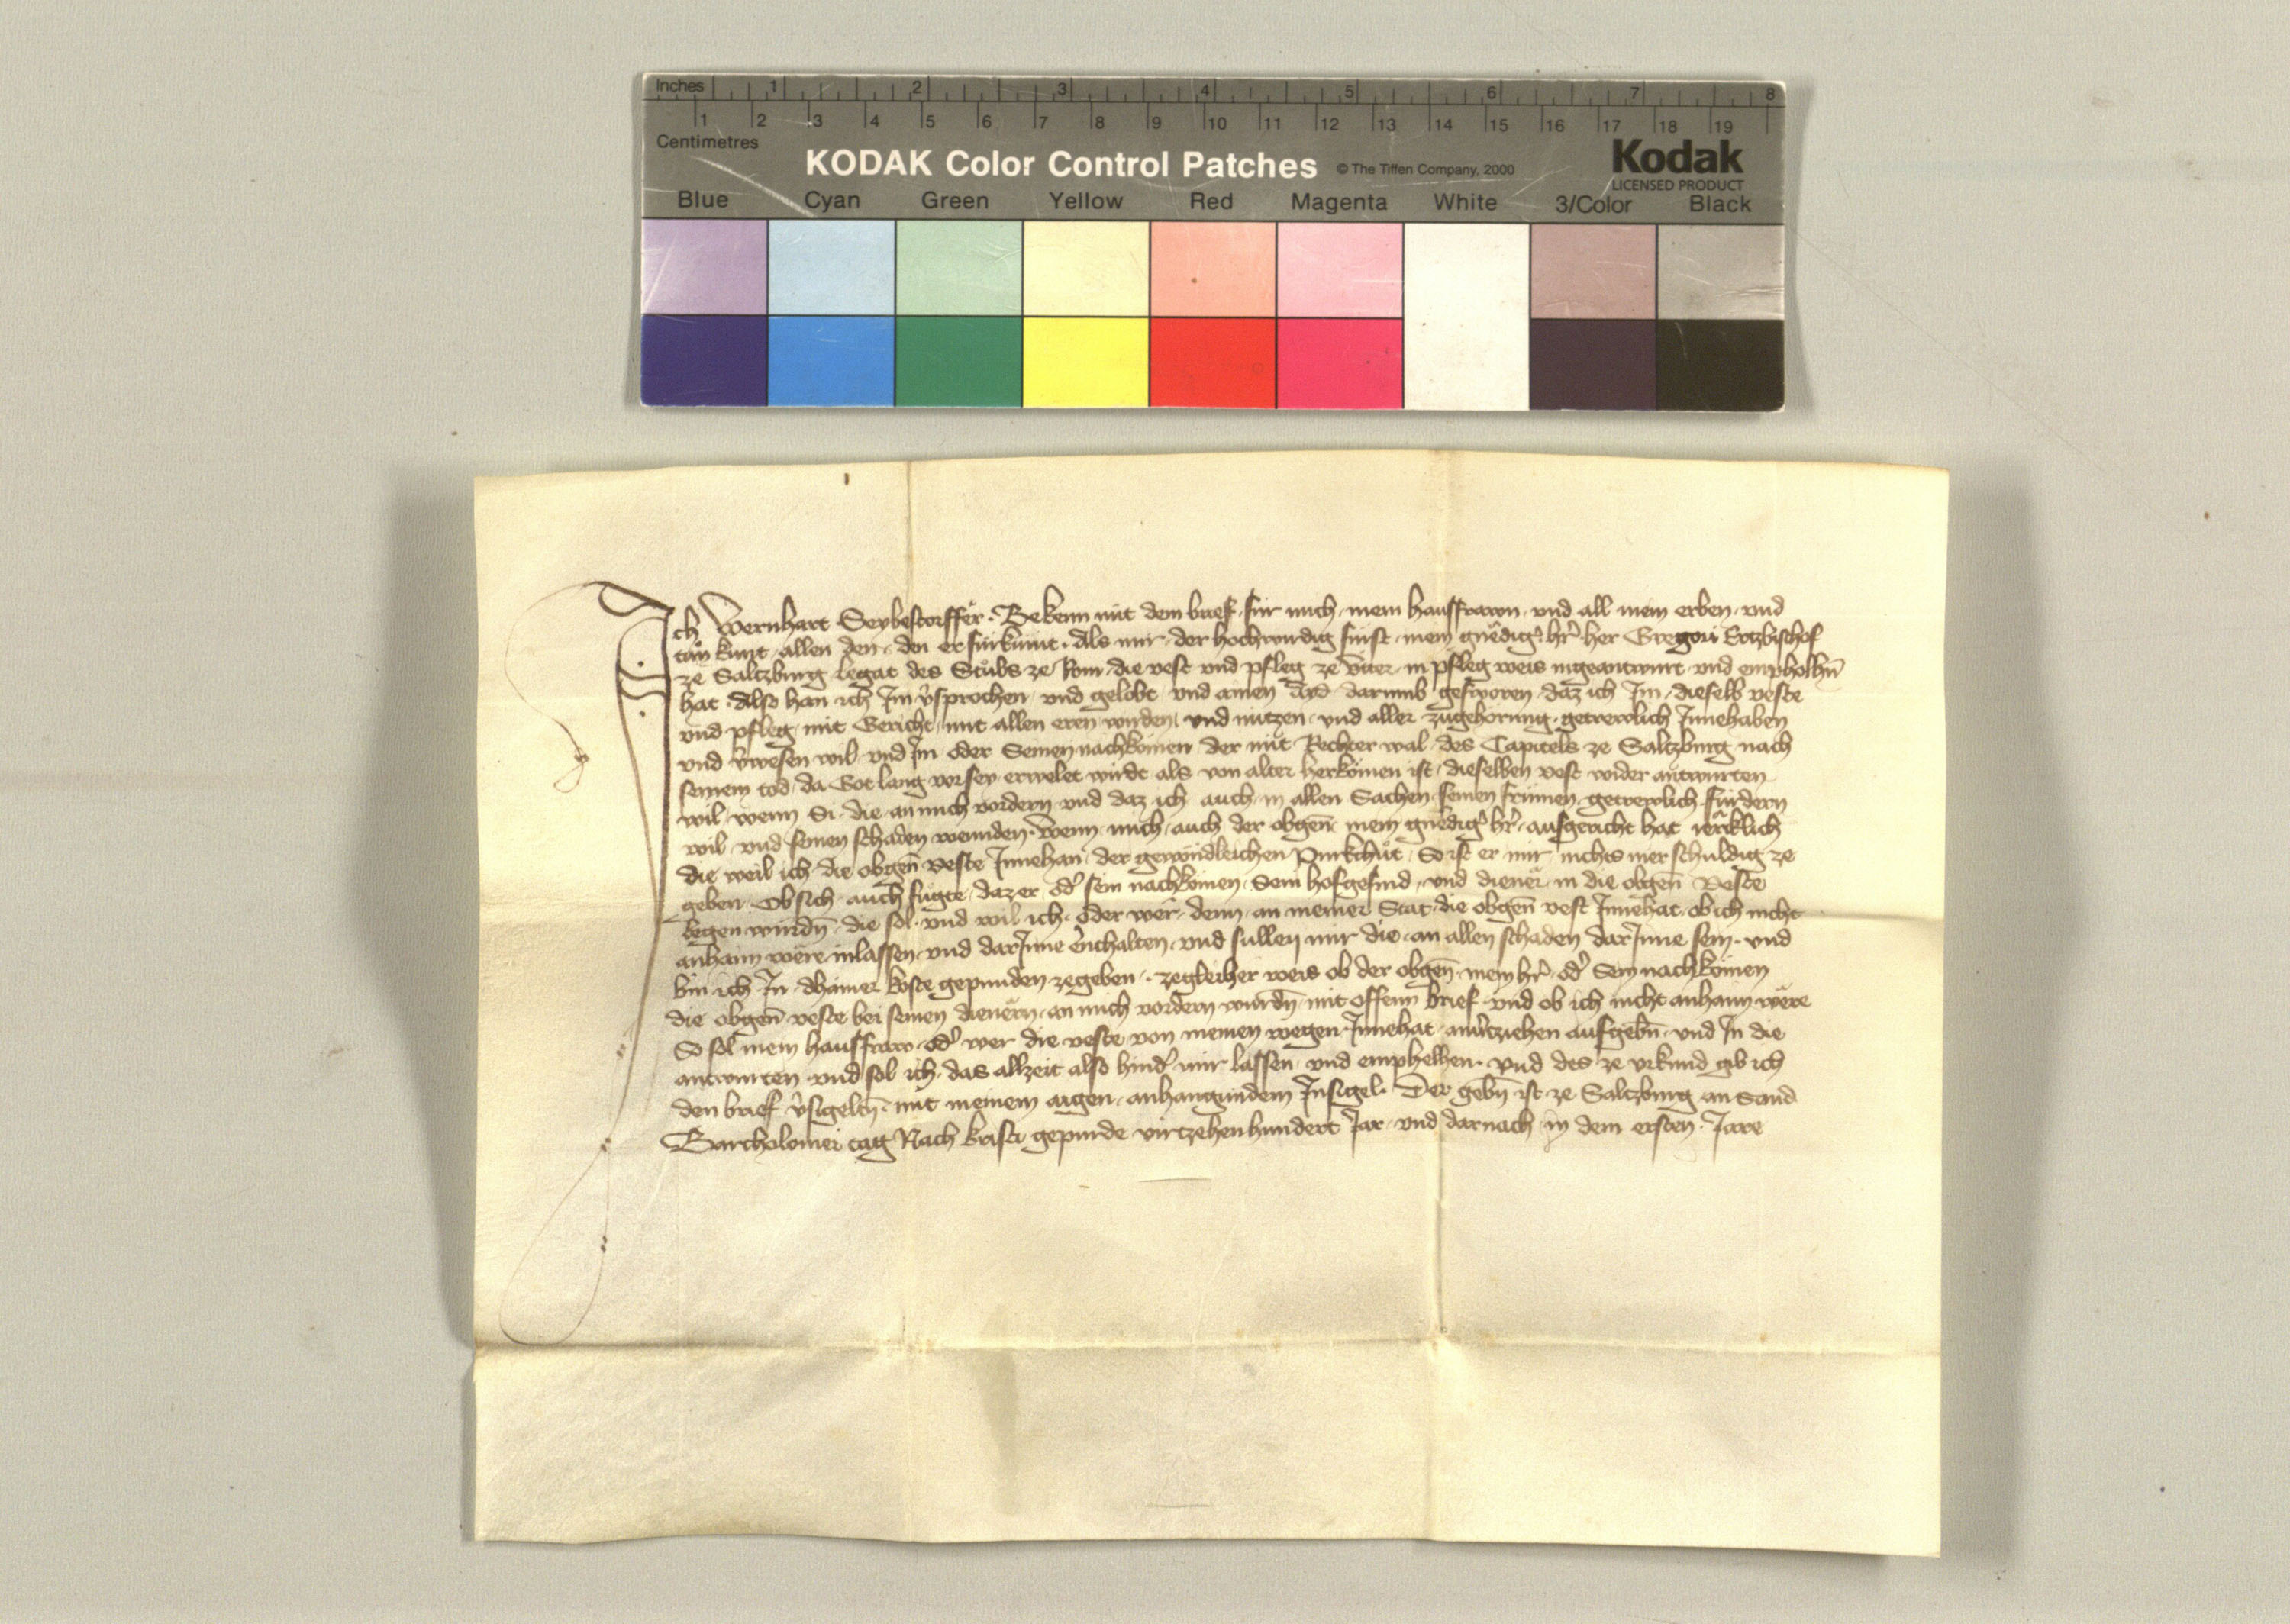 Inches 1 2 3 4 5 6 7 8
1 2 3 4 5 6 7 8 9 10 11 12 13 14 15 16 17 18 19
Centimetres
KODAK Color Control Patches © The Tiffen Company, 2000 Kodak
LICENSED PRODUCT
Blue Cyan Green Yellow Red Magenta White 3/Color Black
Ich Wernhart Seybestorffër. Bekenn mit dem brief. für mich. mein hausfrawn. vnd all mein erben. vnd
tůn kunt. allen den. den er fürkumt. Als mir. der hochwirdig fürst. mein gnëdig hr̄. her Gregori Ertzbischof
ze Saltzburg legat des Stůls ze Rom. die vest vnd pfleg ze. in pfleg weis ingeantwurt. vnd empholhn̄
hat. Also han ich Im v̄sprochen. vnd gelobt. vnd ainen Ayd. darumb gesworen. daz ich Im. dieselb veste
vnd pfleg. mit Gericht. mit allen eren wirden. vnd nützen. vnd aller zůgehörung. getrewlich Innehaben
vnd v̄wesen wil. vnd Im oder Seinen nachkömen der mit Rechter wal. des Capitels ze Saltzburg nach
seinem tod. da Got lang vor sey erwelet wirdt als von alter herkömen ist. dieselben vest wider antwurten
wil. wenn Si. die. an mich vordern vnd daz ich auch. in allen Sachen. seinen frümen. getrewlich. fürdern
wil. vnd seinen schaden wennden. Wenn. mich. auch der obgen̄. mein gnëdig hr̄. ausgericht hat iërklich
die weil ich. die obgen̄ veste Innehan. der gewöndleichen Purkhůt. So ist er mir nichts mer schuldig ze
geben. Ob sich. auch fůgte. daz er. od sein nachkömen. Sein hofgesind. vnd dienër. in die obgen̄ Veste
legen würdn̄. die sol. vnd wil. ich. oder wër. denn. an meiner Stat. die obgen̄ vest Innehat. ob ich nicht
anhaim wëre. inlassen. vnd darInne enthalten. vnd süllen mir die. an allen schaden darInne sein. vnd
bin ich In dhainer koste gepunden zegeben. zegleicher weis ob der obgen̄. mein hr̄. od Sein nachkömen
die obgen̄ veste bei seinen dienërn. an mich vordern würdn̄. mit offenn brief. vnd ob ich nicht anhaim wëre
So sol mein hausfraw. od wer die veste von meinen wegen Innehat. verziehen aufgebn̄. vnd In die
antwurten. vnd sol ich. das allzeit also hind mir lassen. vnd emphelhen. vnd des ze vrkund gib ich
den brief v̄sigeltn̄. mit meinem aigen. anhangundem Insigel. Der gebn̄ ist ze Saltzburg an Sand
Bartholomei tag Nach kristi gepurde virtzehenhundert Jar. vnd darnach in dem ersten. Jare